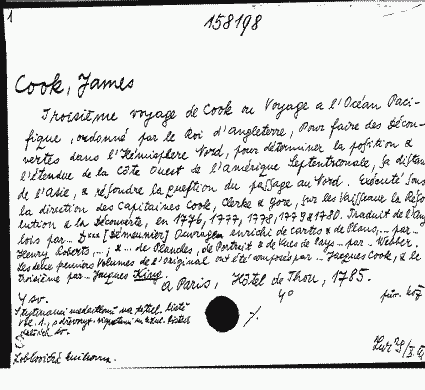 1
158198
Cook, James
Troisième voyage de Cook ou Voyage a l'Océan Paci-
fique, ordonné par le Roi d'Angleterre, Pour faire des Décou-
vertes dans l'Hémisphere Nord, pour déterminer la position &
l'étendue de la Côte Ouest de l'Amérique Septentrionale, sa distan
de l'Asie, & résoudre la question du passage au Nord. Exécuté sous
la direction des Capitaines Cook, Clerke & Gore, sur les Vaisseaux la Réso
lution & la Découverte, en 1776, 1777, 1778, 1779 & 1780. Traduit de l'Ang
lois par... D*** [Démeunier] Ouvrage enrichi de cartes & de Plans,... par...
Henry Roberts,...; & ... de Planches, de Portraits & de Vues de Pays... par... Webber.
Les deux premiers volumes de l'original ont été composés par... Jacques Cook, & le
troisième par... Jacques King
a Paris, Hôtel de Thou, 1785.
4 sv.
4°
na titul. listě